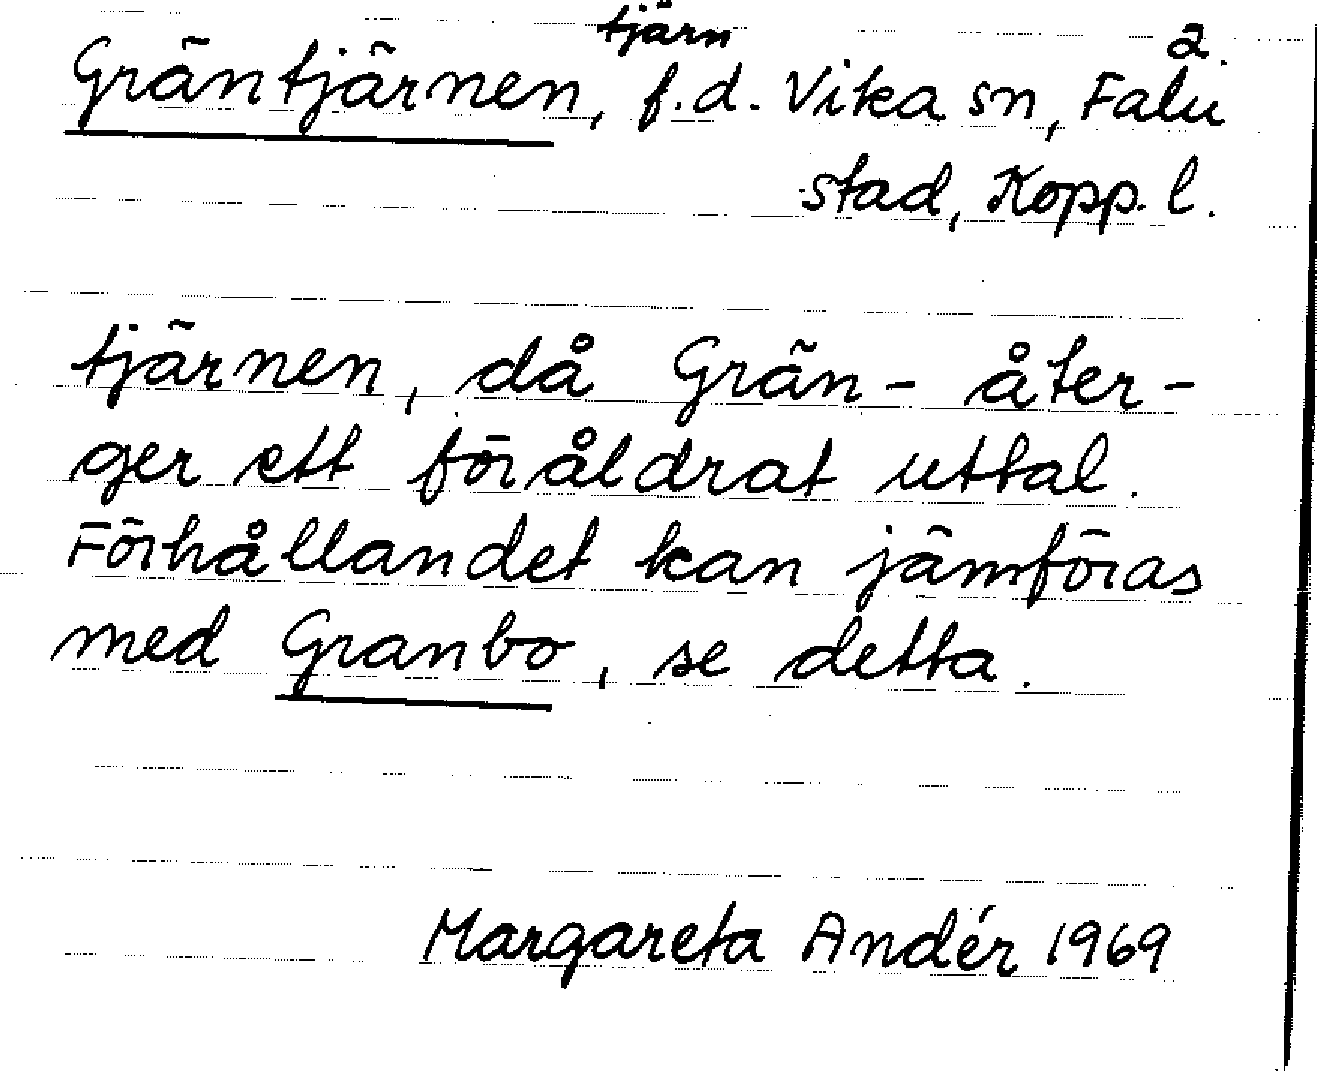 tjärn 2.
Gräntjärnen, f.d. Vika sn, Falu
stad, Kopp. l.
tjärnen, då Grän- åter-
ger ett föråldrat uttal.
Förhållandet kan jämföras
med Granbo, se detta.
Margareta Andér 1969